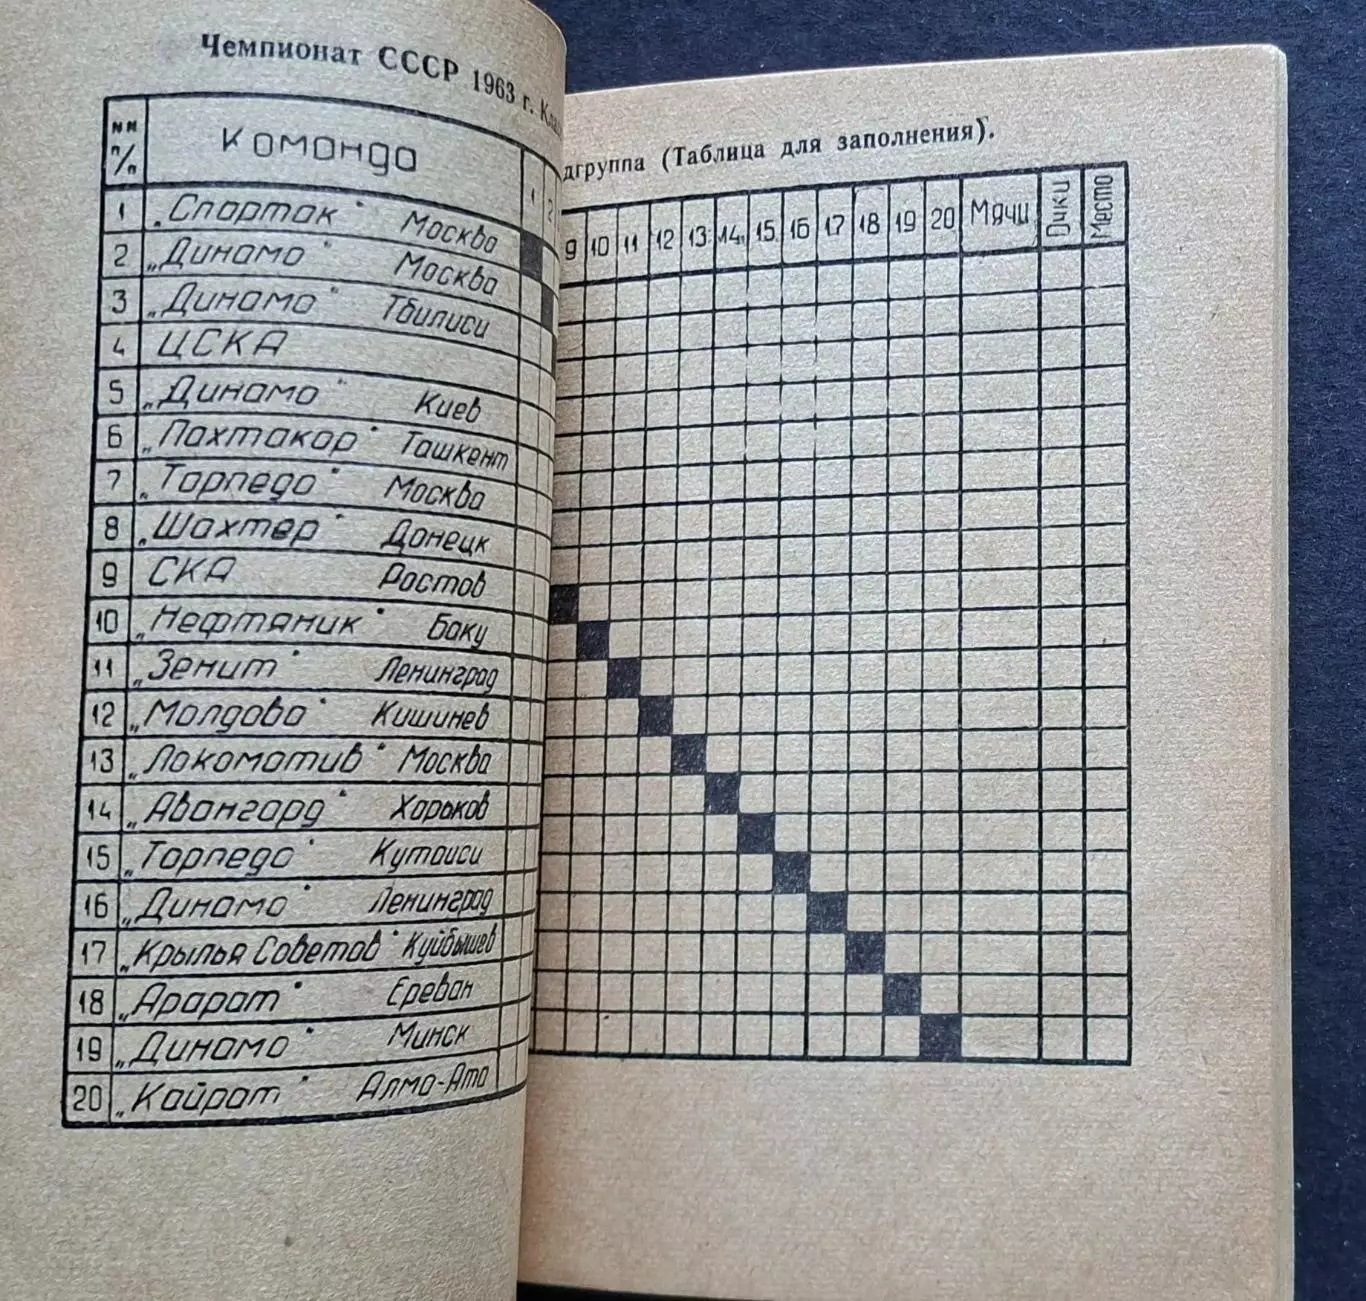 Чемпионат СССР 1963 г.
дгруппа (Таблица для заполнения).
№№ п/п Команда 1 2 9 10 11 12 13 14 15 16 17 18 19 20 Мячи Очки Место
1 „Спартак" Москва
2 „Динамо" Москва
3 „Динамо" Тбилиси
4 ЦСКА
5 „Динамо" Киев
6 „Пахтакор" Ташкент
7 „Торпедо" Москва
8 „Шахтер" Донецк
9 СКА Ростов
10 „Нефтяник" Баку
11 „Зенит" Ленинград
12 „Молдова" Кишинев
13 „Локомотив" Москва
14 „Авангард" Харьков
15 „Торпедо" Кутаиси
16 „Динамо" Ленинград
17 „Крылья Советов" Куйбышев
18 „Арарат" Ереван
19 „Динамо" Минск
20 „Кайрат" Алма-Ата